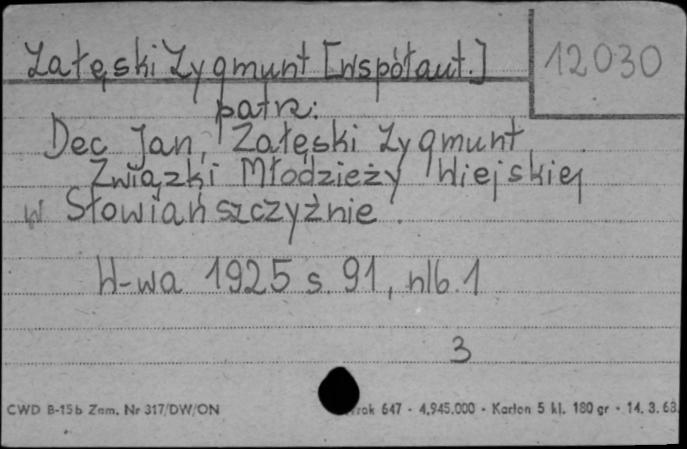 Załęski Zygmunt [współaut.]
12030
patrz:
Dec Jan, Załęski Zygmunt
Związki Młodzieży Wiejskiej
w Słowiańszczyźnie.
W-wa 1925 s. 91, nlb. 1
3
CWD B-15b Zam. Nr 317/DW/ON
647 - 4.945.000 - Karton 5 kl. 180 gr - 14. 3. 63.